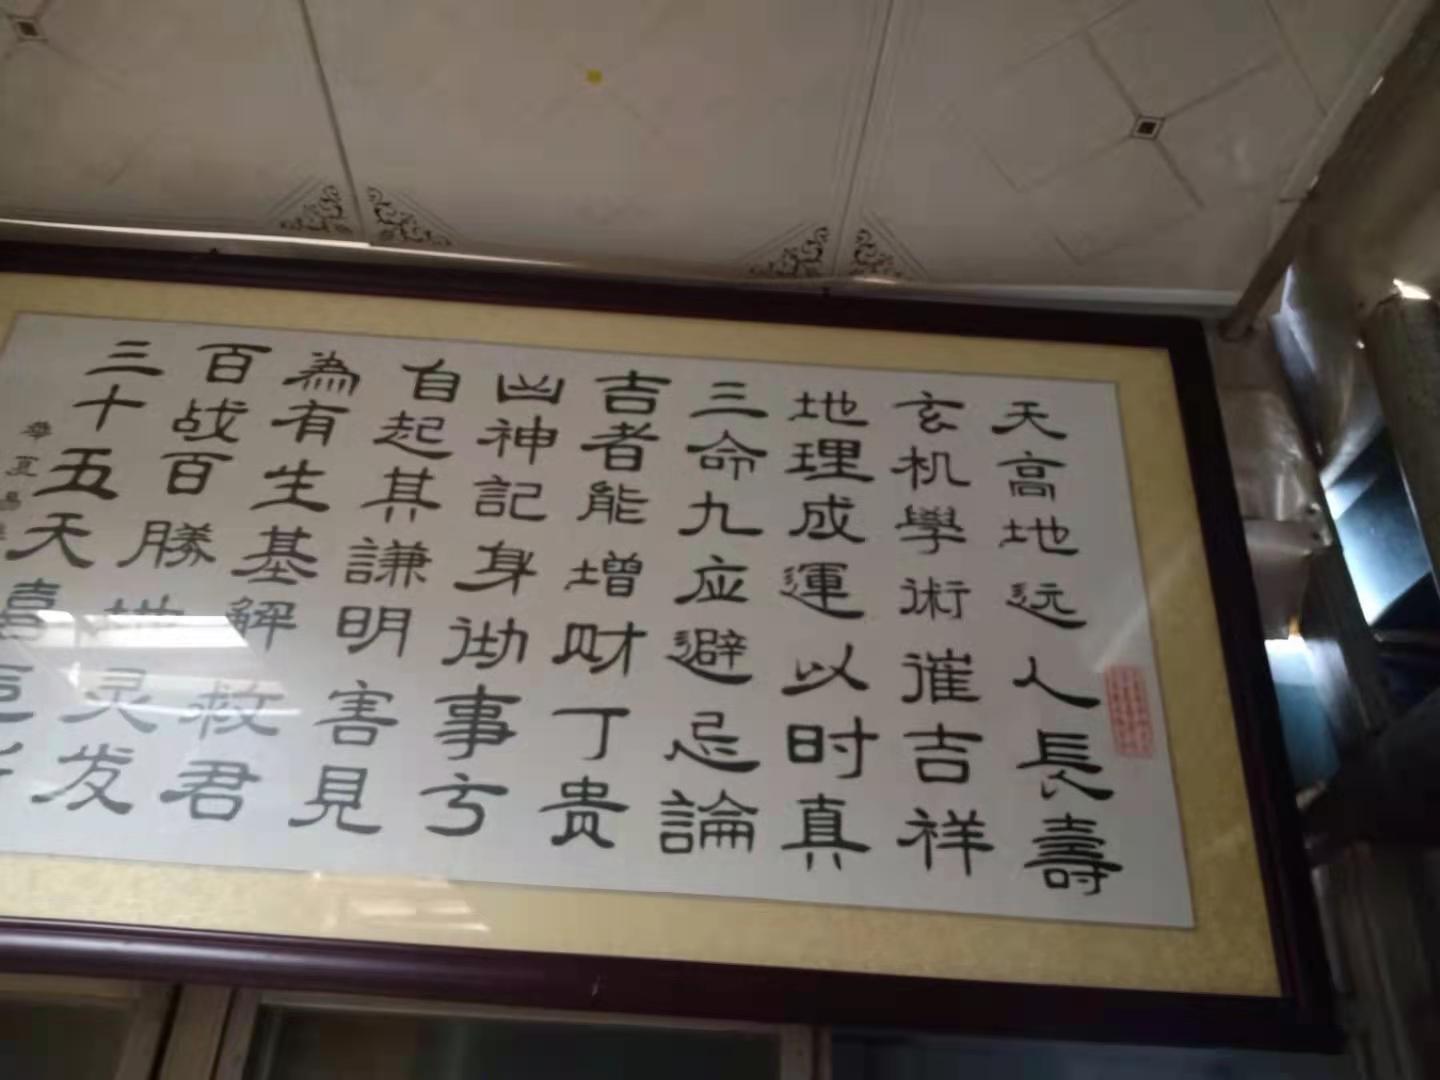 天高地远人長壽
玄机學術催吉祥
地理成運以时真
三命九应避忌論
吉者能增财丁贵
凶神記身泑事亏
自起其謙明害見
為有生基解救君
百战百勝地灵发
三十五天喜
華夏易